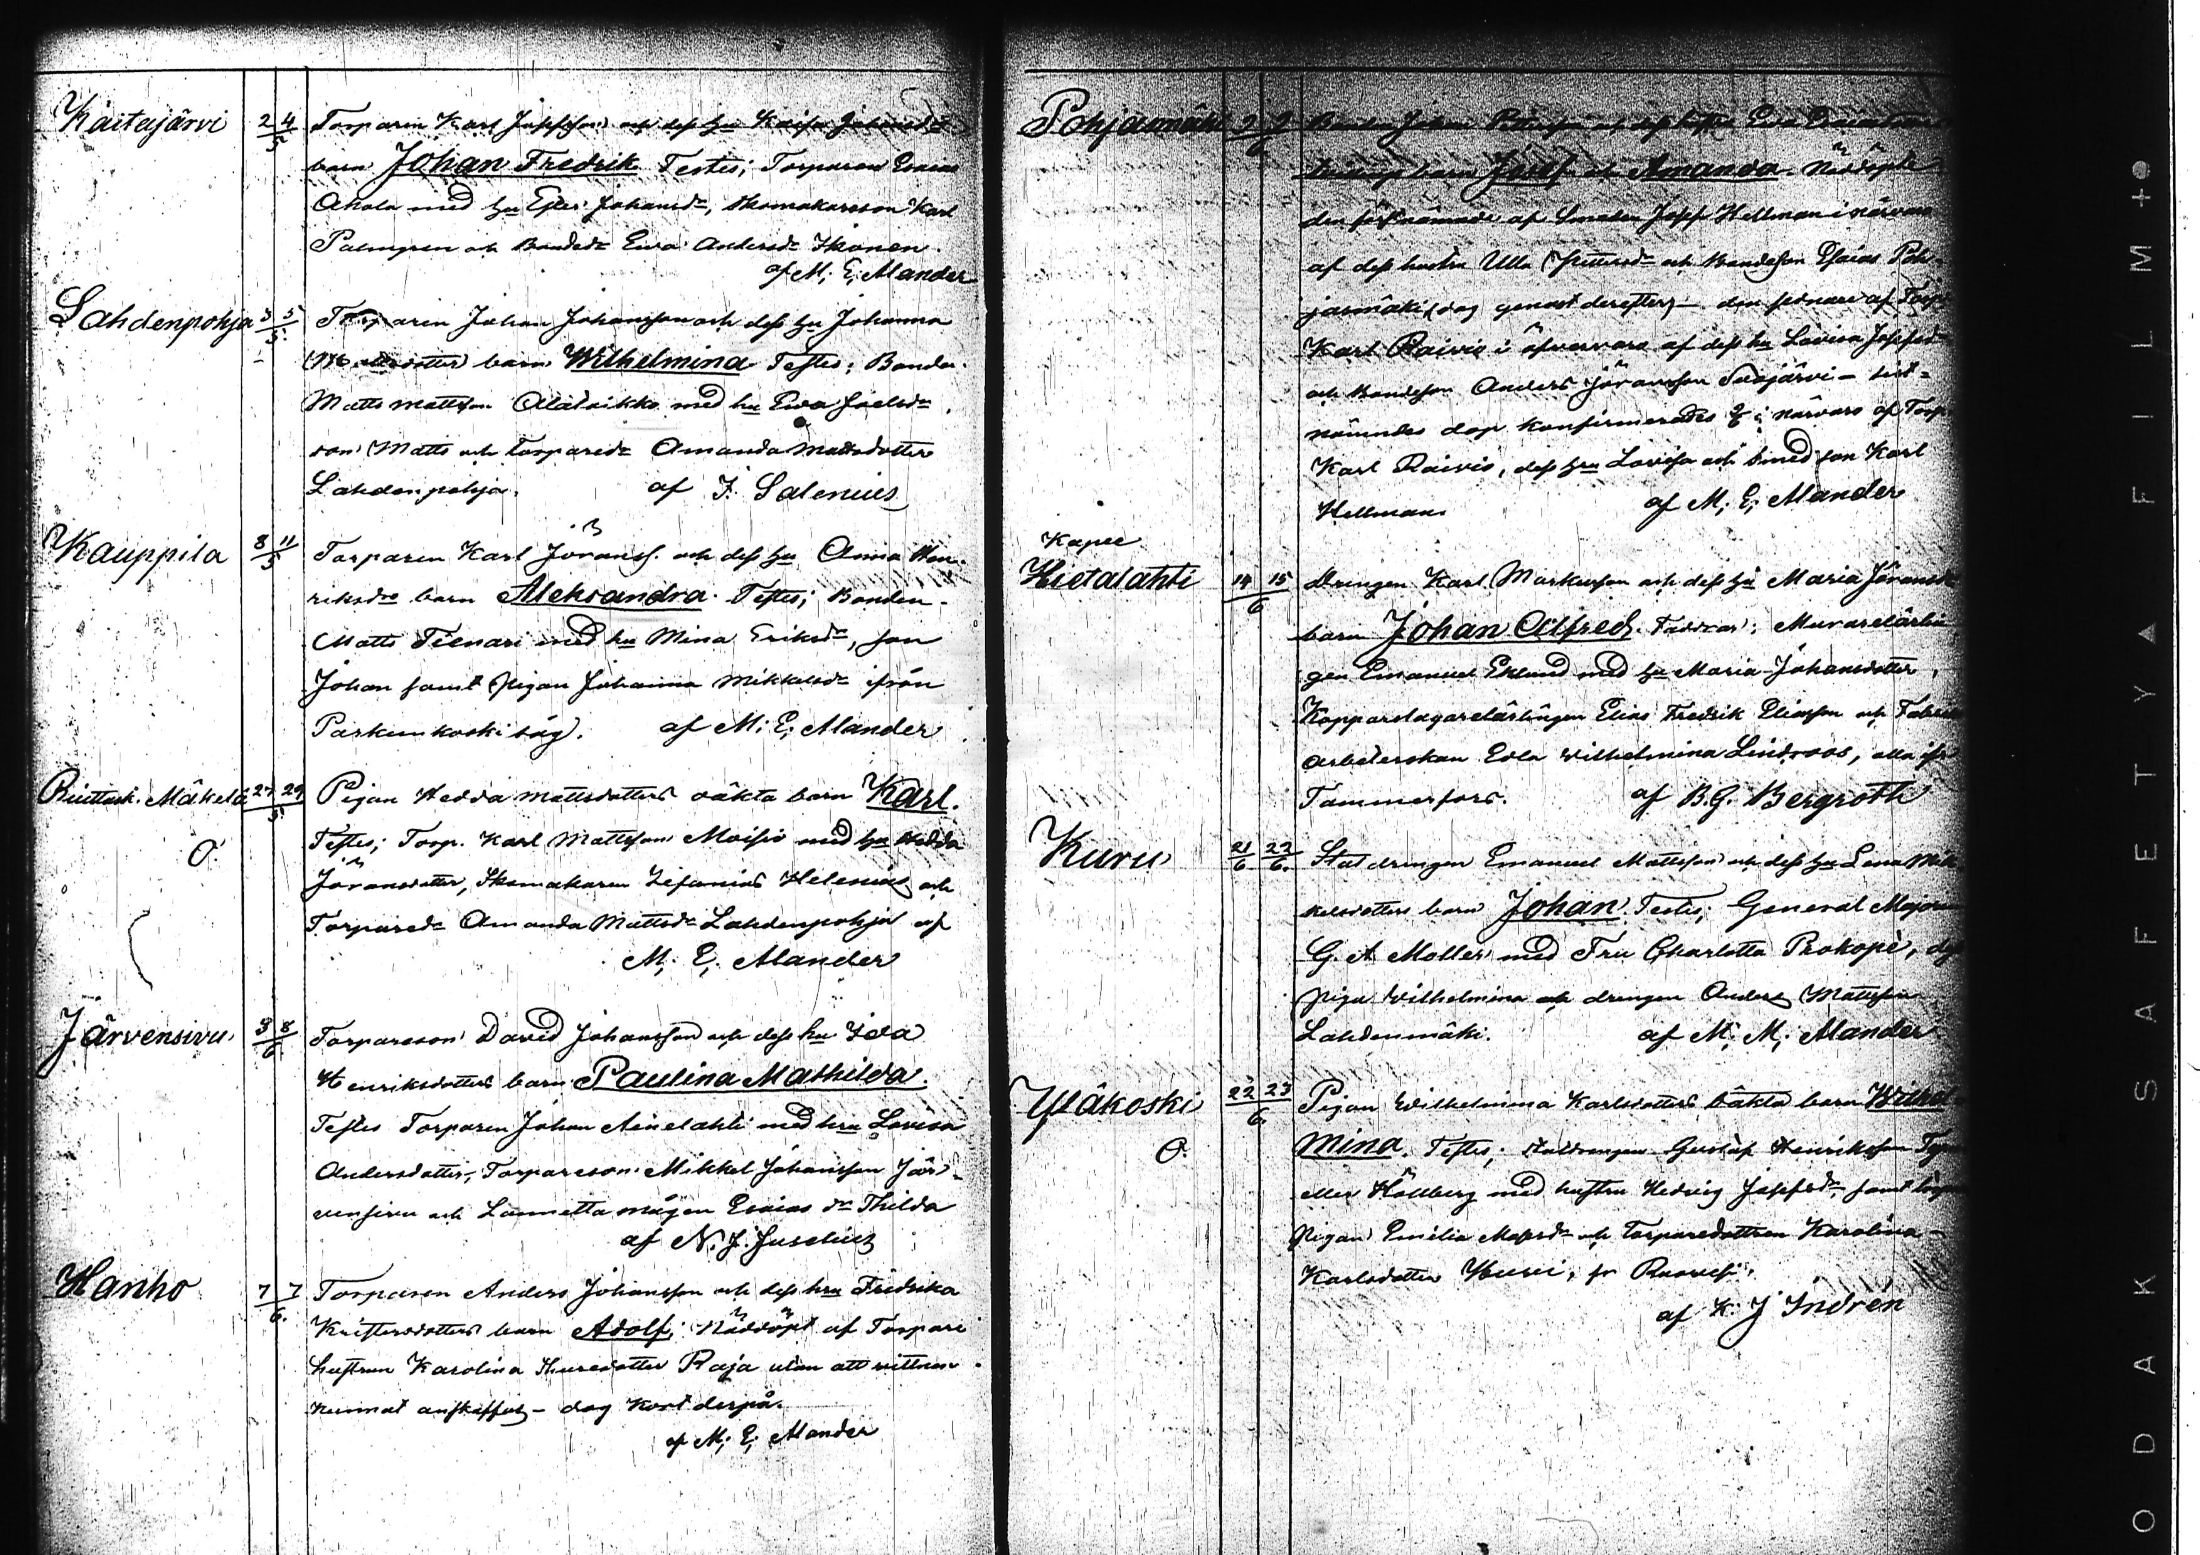 Kaitajärvi 2 4/5 Torparen Karl Josefsson och dess hu Kaisa
barn Johan Fredrik Testes; Torparen Esaias
Ahola med hu Ester Johansdr, skomakareson Karl
Palmgren och Bondedr Eva Andersdr Ikonen
af M. E. Alander
Lahdenpohja 3 5/5 Torparen Johan Johansson och dess hu Johanna
Mattsdotters barn Wilhelmina Testes; Bonden
Matts Mattsson Alataikko med hu Eva Joelsdr
son Matts och torparedr Amanda Mattsdotter
Lahdenpohja. af F. Salenius
Kauppila 8 11/5 Torparen Karl Joranss. och dess hu Anna Hen-
riksdrs barn Aleksandra. Testes; Bonden
Matts Tienari med hu Mina Eriksdr, son
Johan samt Pigan Johanna Mikkelsdr ifrån
Parkunkoski såg. af M. E. Alander
Mäkelä 27 29/5 Pigan Hedda Mattsdotters oäkta barn Karl.
O. Testes; Torp. Karl Mattsson Moisio med hu Hedda
Joransdotter, Skomakaren Zefanias Helenius och
Torparedr Amanda Mattsdr Lahdenpohja af
M. E. Alander
Järvensivu 3 8/6 Torpareson David Johansson och dess hu Ida
Henriksdotters barn Paulina Mathilda.
Testes Torparen Johan Ainelahti med hru Lovisa
Andersdotter, Torpareson Mikkel Johansson Jär-
vensivu och Lammetta mågen Esaias dr Thilda
af N. J. Juselius
Hanho 7 7/6. Torparen Anders Johansson och dess hru Fredrika
Kristersdotters barn Adolf; Nöddöpt af Torpare
hustrun Karolina Thuresdotter Raja utan att vittnen
kunnat anskaffas – dog kort derpå.
af M. E. Alander
Pohjasmäki Bonden Johan och dess hustru Eva
tvillinge barn Josef och Amanda. Nöddöpte
den förstnämnde af Smeden Josef Hellman i närvaro
af dess hustru Ulla Pettersdr och Bondeson Esaias Poh-
jasmäki (dog genast derefter) – den sednare af Torp
Karl Raivio i öfvervaro af dess hu Lovisa Josefsdr
och Bondeson Anders Jöransson – sist-
nämndes dop konfirmerades i närvaro af Torp
Karl Raivio, dess hru Lovisa och smed son Karl
Hellman. af M. E. Alander
Kapee
Hietalahti 14 15/6 Drängen Karl Markusson och dess hu Maria Jöransdr
barn Johan Alfred. Faddrar: Murarelärlin
gen Emanuel Eklund med hu Maria Johansdotter,
Kopparslagarelärlingen Elias Fredrik Eliasson och Fabriks
arbeterskan Edla Wilhelmina Lindroos, alla ifr
Tammerfors. af B. G. Bergroth
Kuru 21/6 22/6. Stat drengen Emanuel Mattsson och dess hu Lena Mik
kelsdotters barn Johan. Testes; General Majoren
G. A Moller med Fru Charlotta Prokopè,
Piga Wilhelmina och drengen Anders Mattsson
Lahdenmäki. af M. M. Alander
Yläkoski 22 23/6 Pigan Wilhelmina Karlsdotters oäkta barn Wilhel
O. mina. Testes; staldrengen Gustaf Henriksson
eller Hällberg med hustru Hedvig Josefsdr, samt
Pigan Emilia och torparedottren Karolina
Karlsdotter fr Ruovesi.
af K. J Indrén
KODAK SAFETY▲FILM+●